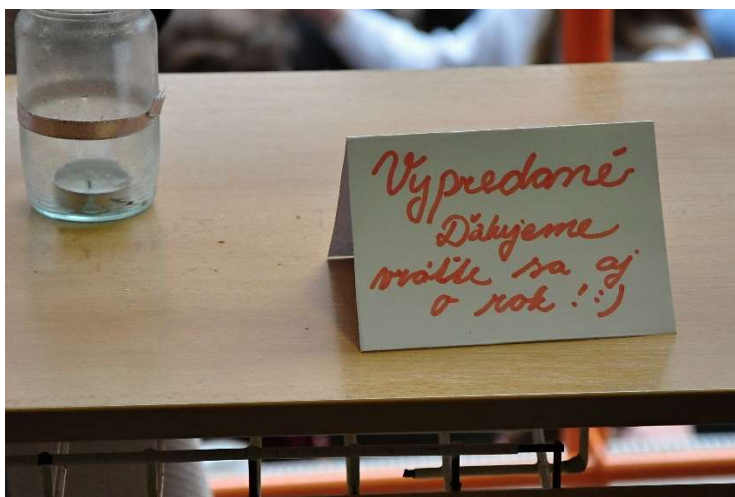 Vypredané
Ďakujeme
vráťte sa aj
o rok ! :)